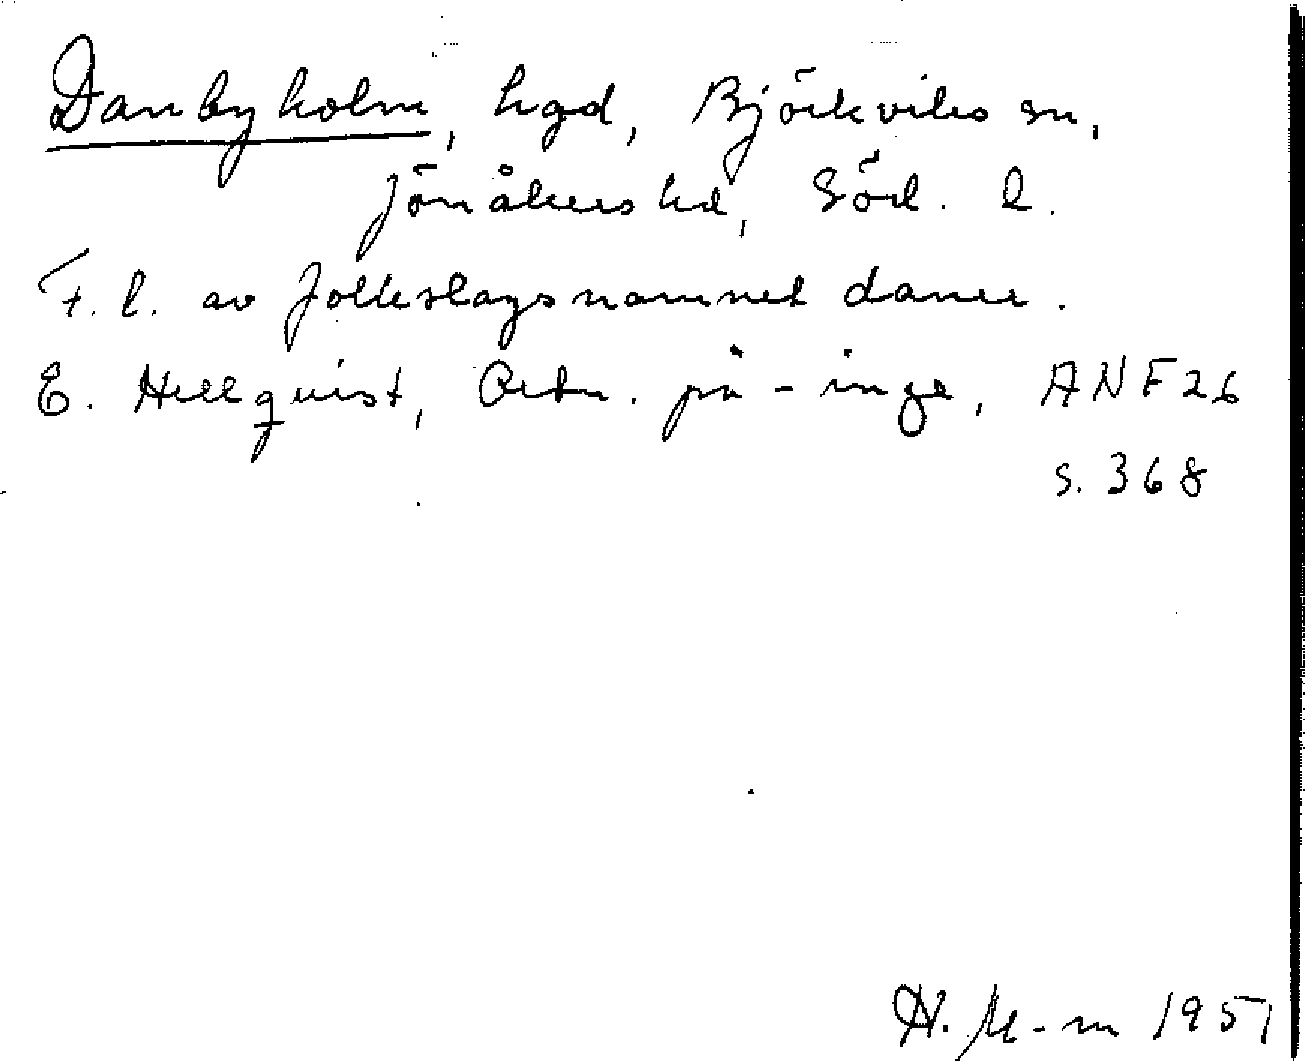 Danbyholm, hgd, Björkviks sn,
Jönåkers hd, Söd. l.
F. l. av folkslagsnamnet daner.
E. Hellquist, Ortn. på -inge, ANF 26
s. 368
H. M-m 1951